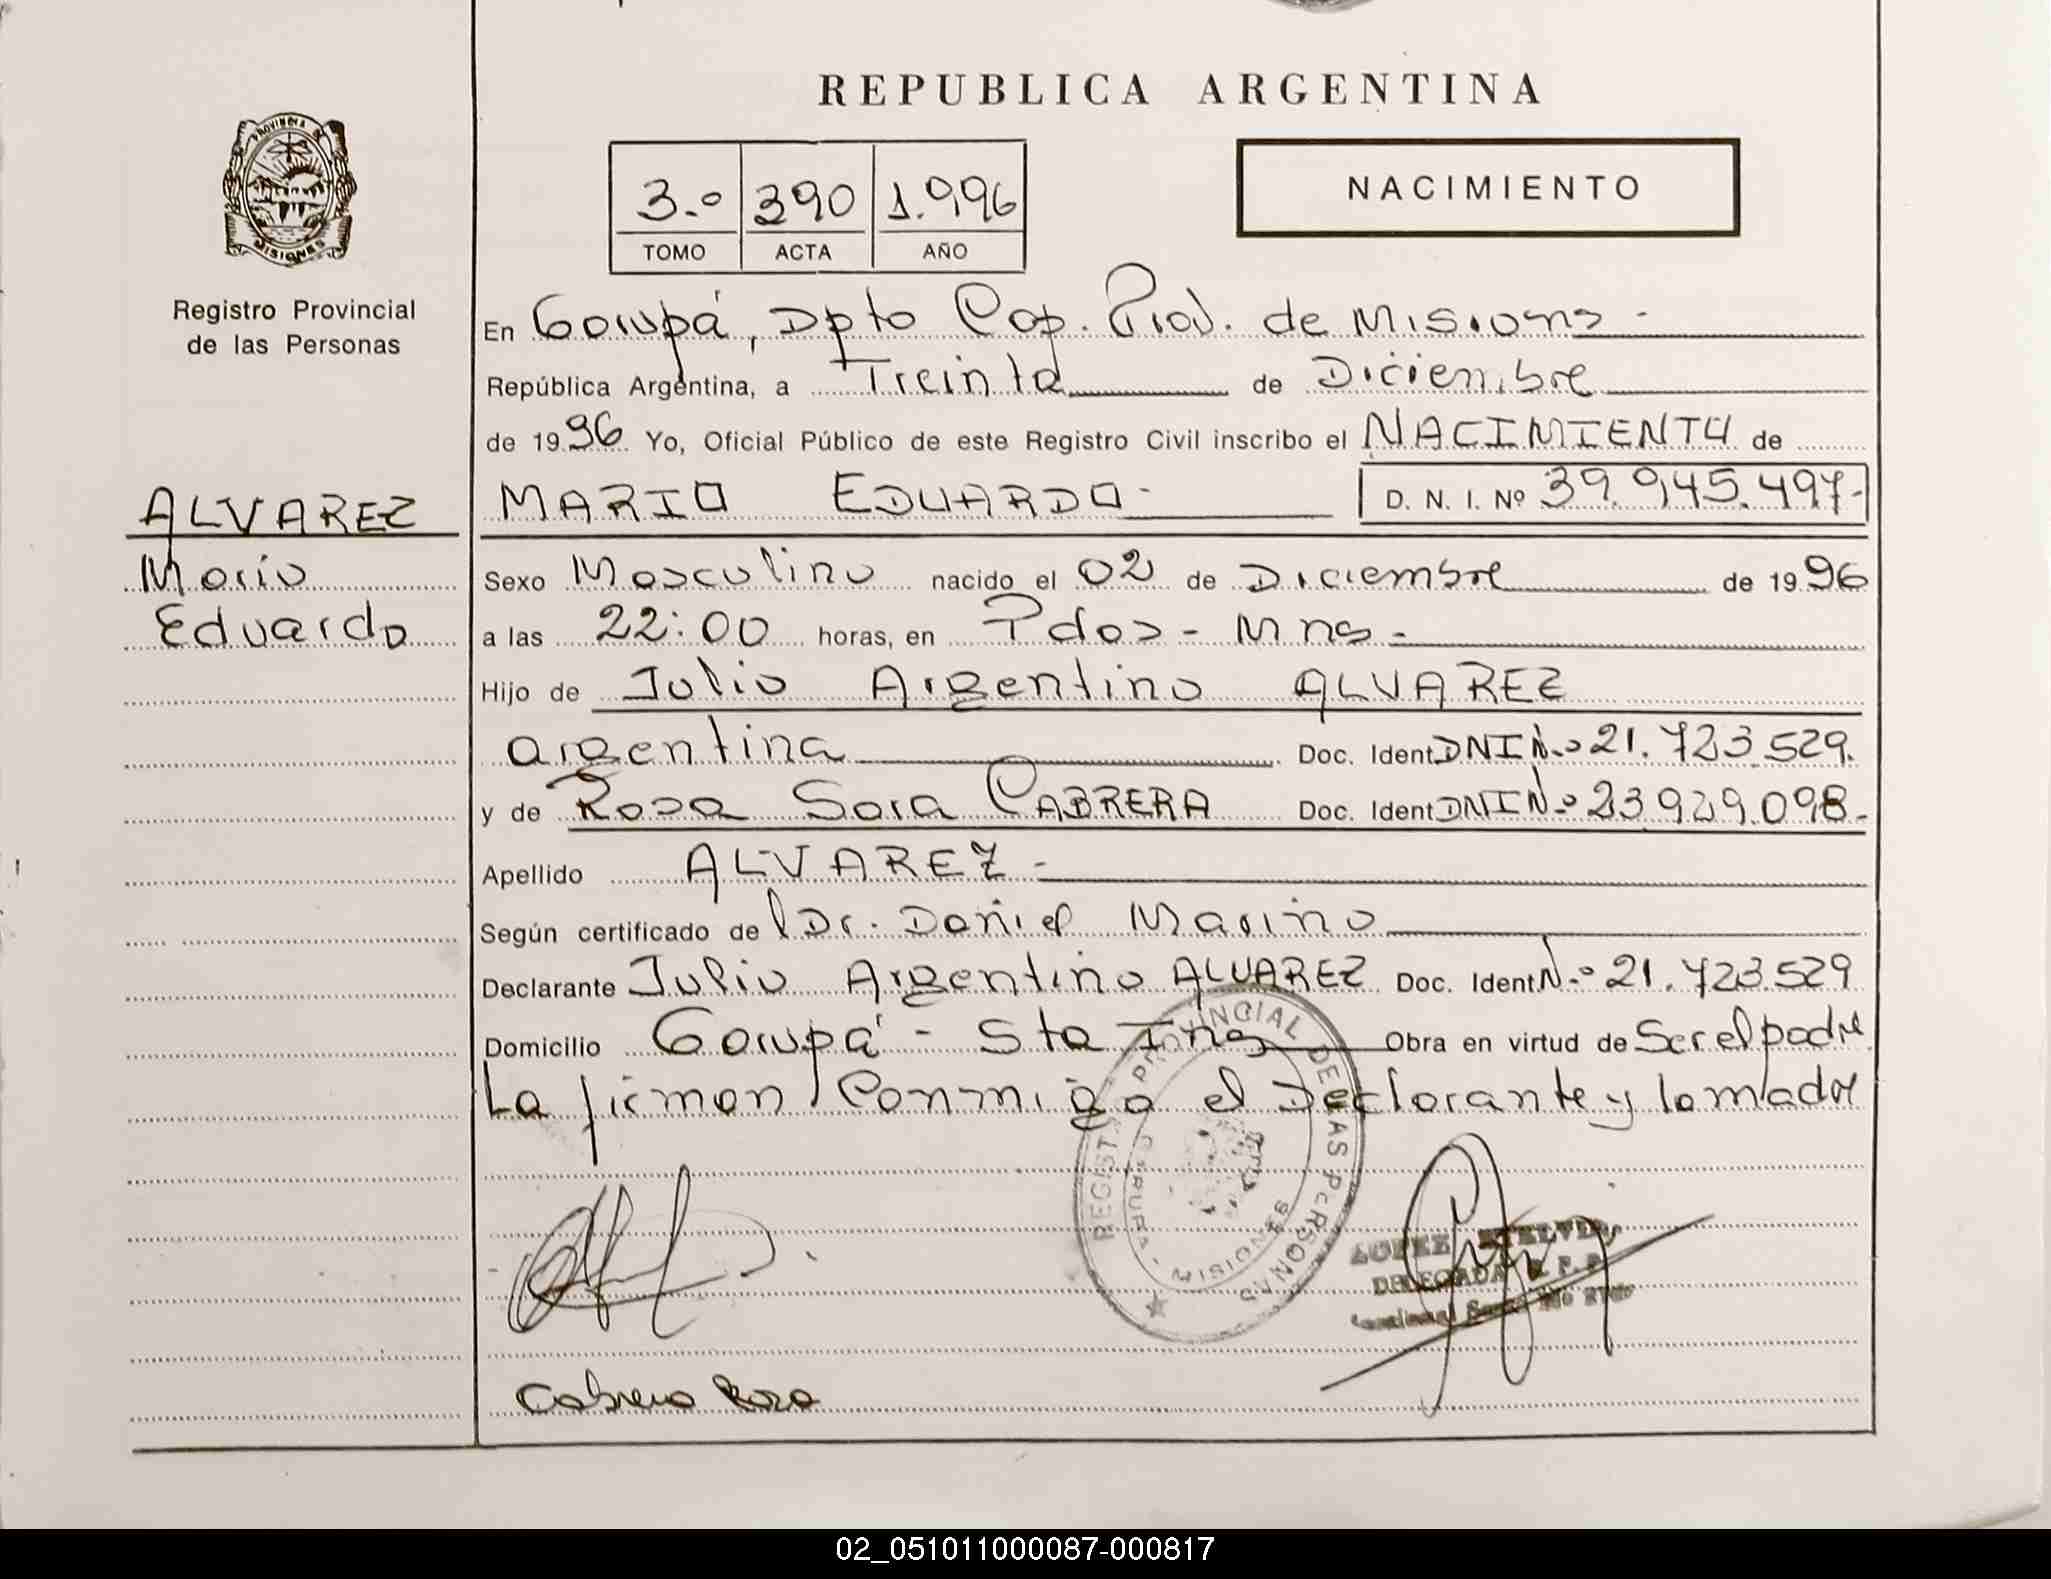 REPUBLICA ARGENTINA
PROVINCIA DE MISIONES
Registro Provincial
de las Personas
3.º 390 1.996
TOMO ACTA AÑO
NACIMIENTO
En Garupá, Dpto Cap. Prov. de Misiones -
República Argentina, a Treinta de Diciembre
de 1996 Yo, Oficial Público de este Registro Civil inscribo el NACIMIENTO de
ALVAREZ
Mario
Eduardo
MARIO EDUARDO - D. N. I. Nº 39.945.497-
Sexo Masculino nacido el 02 de Diciembre de 1996
a las 22:00 horas, en Pdas - Mnes -
Hijo de Julio Argentino ALVAREZ
argentina Doc. Ident DNI Nº 21.723.529.
y de Rosa Sara CABRERA Doc. Ident DNI Nº 23.929.098.-
Apellido ALVAREZ -
Según certificado del Dr. Daniel Marino
Declarante Julio Argentino ALVAREZ Doc. Ident Nº 21.723.529
Domicilio Garupá - Sta Inés Obra en virtud de Ser el padre
La firman Conmigo el Declarante y la madre
REGISTRO PROVINCIAL DE LAS PERSONAS
GARUPA - MISIONES
LOPEZ
DELEGADA R. P. P.
Cabrera Rosa
02_051011000087-000817